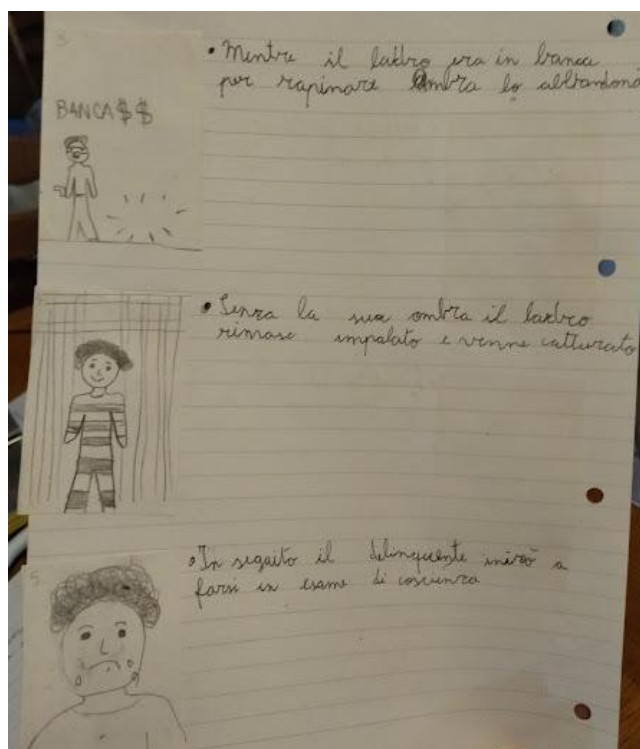 3
• Mentre il ladro era in banca
per rapinare Ombra lo abbandonò
BANCA $$
• Senza la sua ombra il ladro
rimase impalato e venne catturato
5
• In seguito il delinquente iniziò a
farsi un esame di coscienza